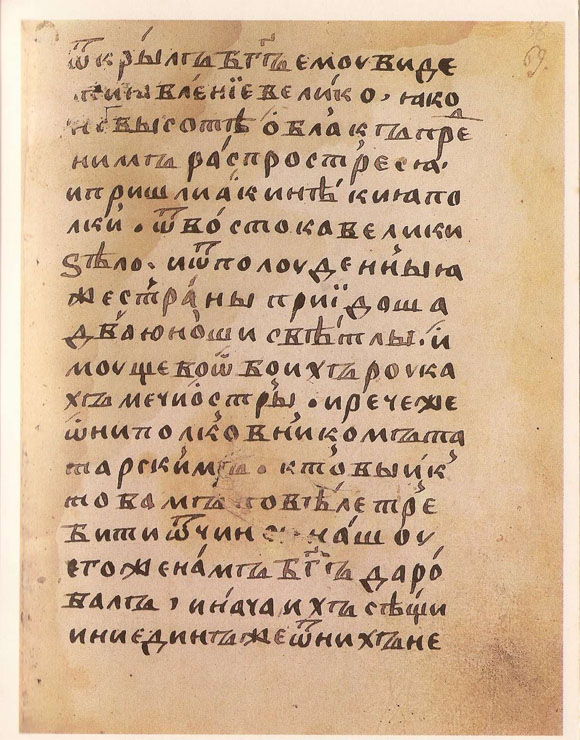 ѿкры́лъ бг҃ъ емоу виде
ти ꙗвле́нїе вели́ко, ꙗко
на высотѣ о́блакъ пре
ни мъ ра́спростре́сꙗ,
и пришлиа́ки нѣ́киꙗ по
лки́. ѿ восто́ка велики
ѕѣло. и ѿ полоуде́нныꙗ
же страны̀ прїидоша
два̀ ю́ноши свѣ́тлы. и́
моуще во ѿбои́хъ роука
хъ мечѝ о́стры. и рече же
ѡ́ни полко́внико мъ та
тарски́мъ. кто̀ вы и́ к
то ва́мъ повѣлѐ тре
бити ѿчи нашоу
его́ же на́мъ бг҃ъ даро́
валъ, и нача́ и́хъ сѣщи
и ни еди́нъ же ѿ ни́хъ не
69.